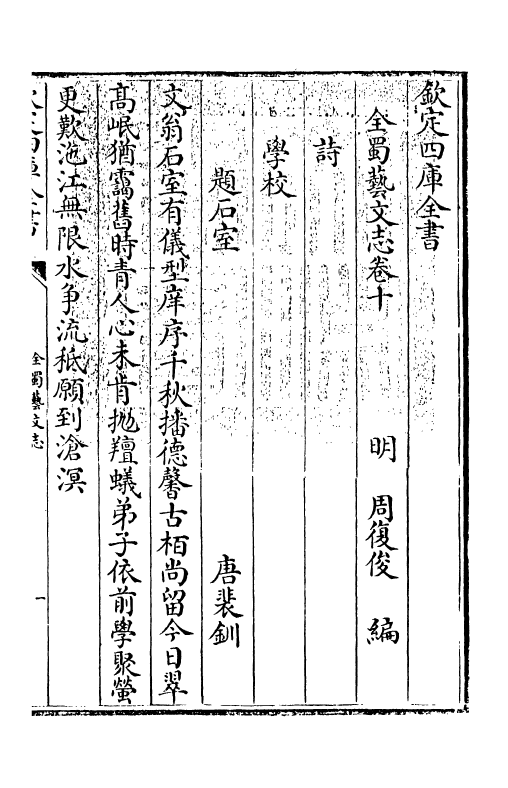 欽定四庫全書
全蜀藝文志卷十　明　周復俊　編
詩
學校
題石室　唐裴鉶
文翁石室有儀型庠序千秋播德馨古栢尚留今日翠
高岷猶靄舊時青人心未肯抛羶蟻弟子依前學聚螢
更歎沲江無限水争流秖願到滄溟
全蜀藝文志
一